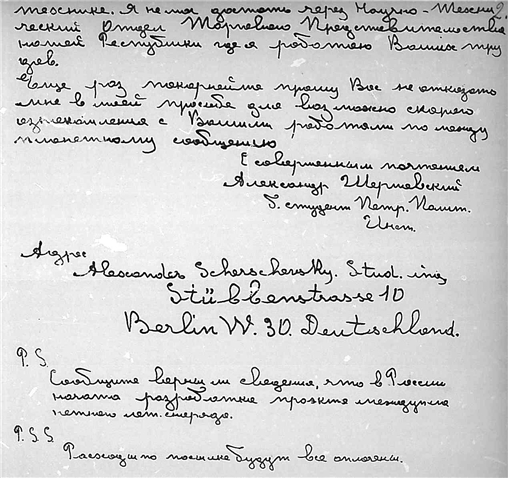 технике. Я не мог достать через Научно-Технический 2.
ческий Отдел Торгового Представительства
нашей Республики где я работаю Ваших тру
дов.
Еще раз покорнейше прошу Вас не отказать
мне в моей просьбе для возможно скорого
ознакомления с Вашими работами по между
планетному сообщению
С совершенным почтением
Александр Шершевский
б. студент Петр. Полит.
Инст.
Адрес
Alexander Scherschevsky. Stud. ing.
Stübbenstrasse 10
Berlin W. 30. Deutschland.
P. S.
Сообщите верны ли сведения, что в России
начата разработка проэкта междупла
нетного лет. снаряда.
P. S. S.
Расходы по посылке будут все оплачены.